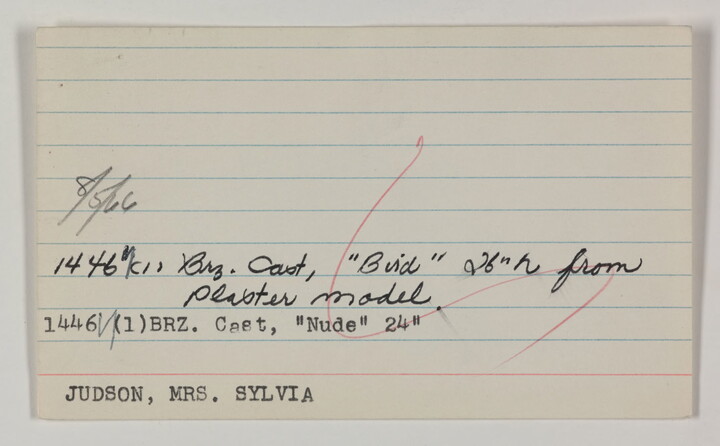 8/5/66
1446 (1) Brz. Cast, "Bird" 26" h from
Plaster model.
1446 (1)BRZ. Cast, "Nude" 24"
JUDSON, MRS. SYLVIA